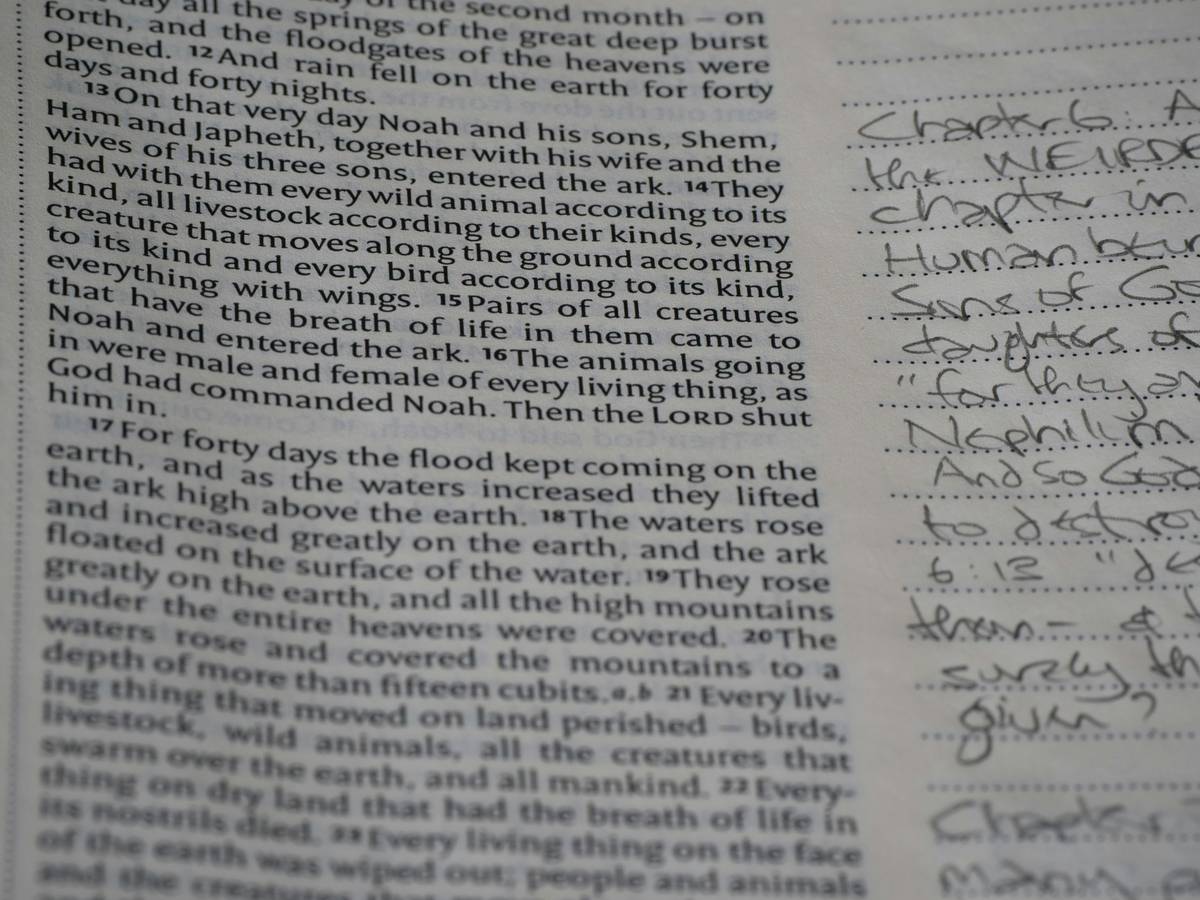 day all the springs of the great deep burst
forth, and the floodgates of the heavens were
opened. 12 And rain fell on the earth for forty
days and forty nights.
13 On that very day Noah and his sons, Shem,
Ham and Japheth, together with his wife and the
wives of his three sons, entered the ark. 14 They
had with them every wild animal according to its
kind, all livestock according to their kinds, every
creature that moves along the ground according
to its kind and every bird according to its kind,
everything with wings. 15 Pairs of all creatures
that have the breath of life in them came to
Noah and entered the ark. 16 The animals going
in were male and female of every living thing, as
God had commanded Noah. Then the LORD shut
him in.
17 For forty days the flood kept coming on the
earth, and as the waters increased they lifted
the ark high above the earth. 18 The waters rose
and increased greatly on the earth, and the ark
floated on the surface of the water. 19 They rose
greatly on the earth, and all the high mountains
under the entire heavens were covered. 20 The
waters rose and covered the mountains to a
depth of more than fifteen cubits.a,b 21 Every liv-
ing thing that moved on land perished – birds,
livestock, wild animals, all the creatures that
swarm over the earth, and all mankind. 22 Every-
thing on dry land that had the breath of life in
its nostrils died. 23 Every living thing on the face
of the earth was wiped out; people and animals
and the creatures that
Chapter 6: A
the WEIRDE
chapter in
Human
Sons of Go
daughters of
"for they a
Nephilim
And so God
to destro
6:13 "de
them - &
surely th
given?
Chapter
many